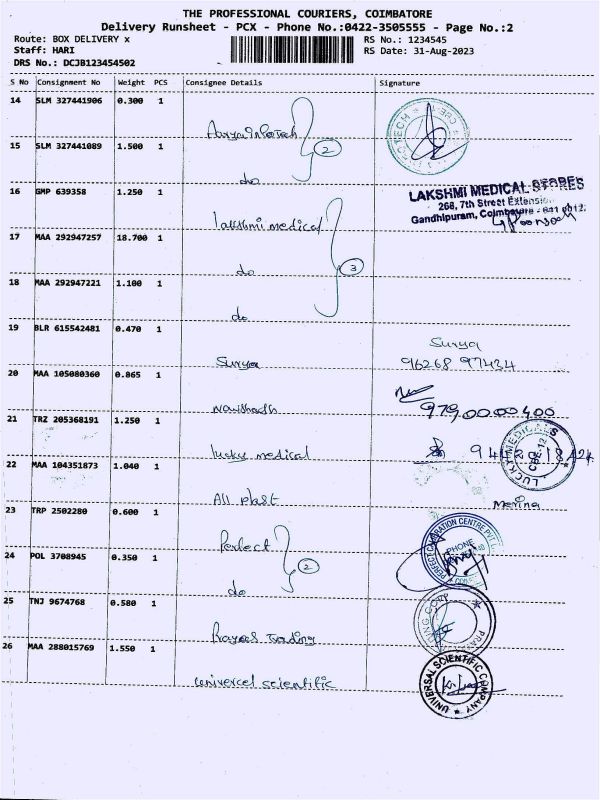 THE PROFESSIONAL COURIERS, COIMBATORE
Delivery Runsheet - PCX - Phone No.:0422-3505555 - Page No.:2
Route: BOX DELIVERY x
RS No.: 1234545
Staff: HARI
RS Date: 31-Aug-2023
DRS No.: DCJB123454502
S No Consignment No Weight PCS Consignee Details Signature
14 SLM 327441906 0.300 1
Aarya infotech
15 SLM 327441089 1.500 1
2
do
16 GMP 639358 1.250 1
LAKSHMI MEDICAL STORES
268, 7th Street Extension
Gandhipuram, Coimbatore - 641 012.
lakshmi medical
17 MAA 292947257 18.700 1
do
3
18 MAA 292947221 1.100 1
do
19 BLR 615542481 0.470 1
Surya
Surya
96268 97434
20 MAA 105080360 0.865 1
nowshadh
979,00.00400
21 TRZ 205368191 1.250 1
lucky medical
LUCKY MEDICALS
CBE.12
22 MAA 104351873 1.040 1
All plast
Merina
23 TRP 2502280 0.600 1
Perfect
PERFECT CALIBRATION CENTRE PVT
PHONE
24 POL 3708945 0.350 1
2
do
25 TNJ 9674768 0.580 1
Trading
26 MAA 288015769 1.550 1
univercel scientific
UNIVERSAL SCIENTIFIC COMPANY